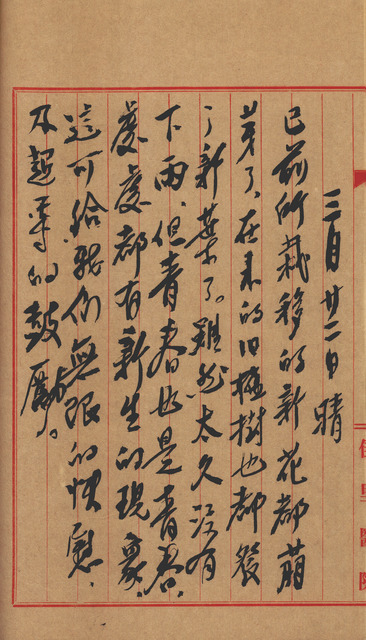 三月廿二日晴
已前所栽移的新花都萌
芽了、在來的旧植樹也都發
了新葉了。雖然太久沒有
下雨、但青春也是青春、
處處都有新生的現象、
這可給我们無限的慰
不起等的鼓勵。